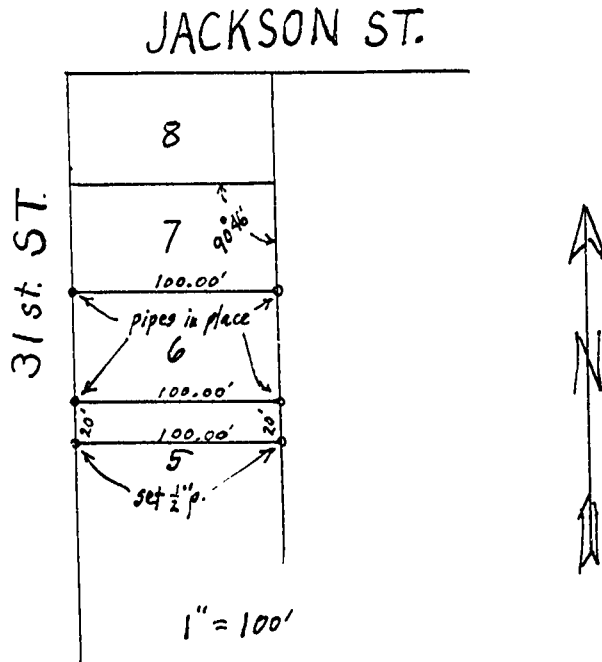 JACKSON ST.
31st. ST.
8
7
90°46'
100.00'
pipes in place
6
100.00'
20'
20'
100.00'
5
set 1/2" p.
N
1" = 100'